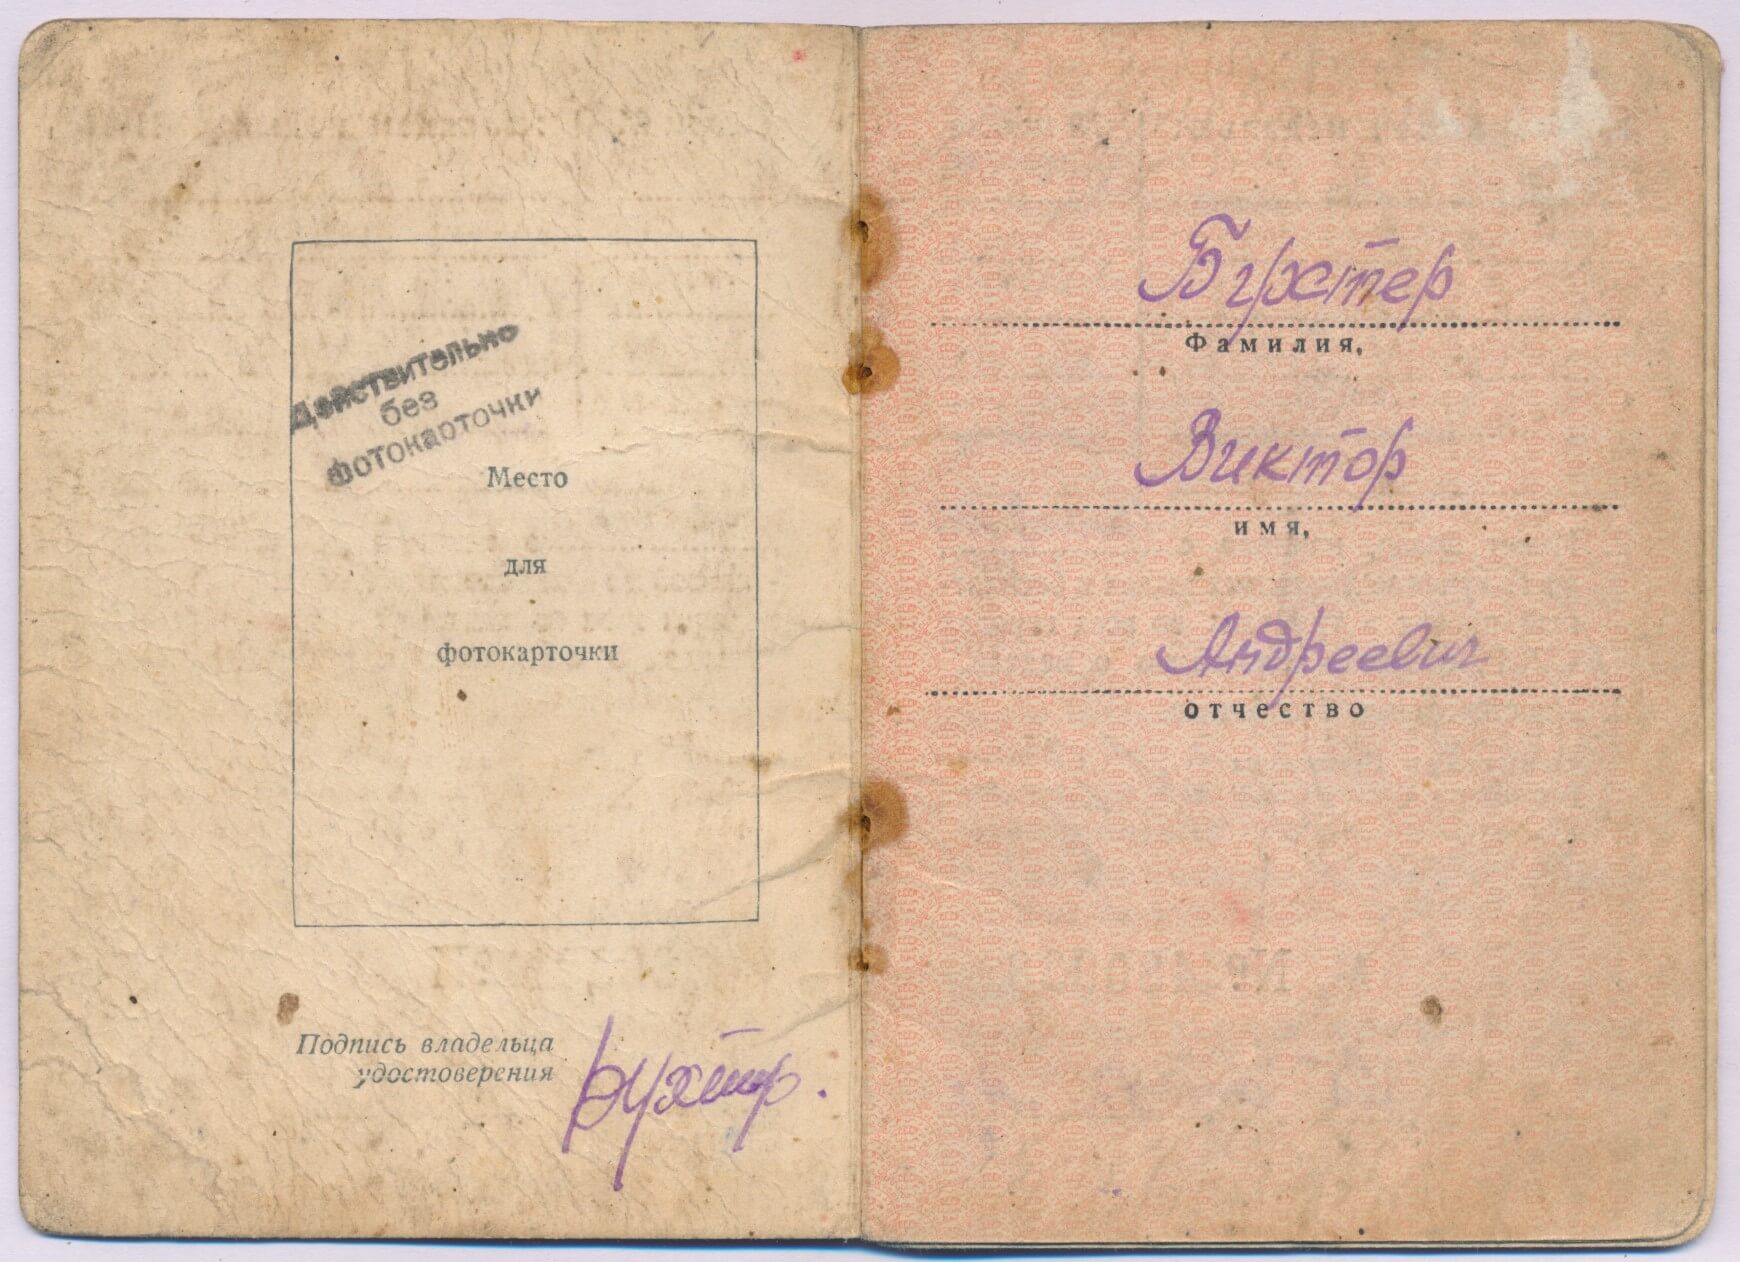 Действительно
без
фотокарточки
Место
для
фотокарточки
Подпись владельца
удостоверения
Бухтер
Фамилия,
Виктор
имя,
Андреевич
отчество